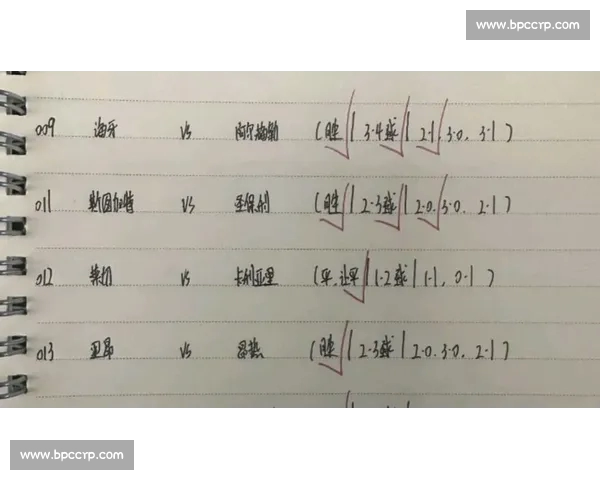 www.bpccrp.com
009 海牙 VS 阿尔梅勒 (胜 | 3·4球 | 2·1, 3·0, 3·1)
011 斯图加特 VS 圣保利 (胜 | 2·3球 | 2·0, 3·0, 2·1)
012 莱切 VS 卡利亚里 (平, 让平 | 1·2球 | 1·1, 0·1)
013 里昂 VS 昂热 (胜 | 2·3球 | 2·0, 3·0, 2·1)
www.bpccrp.com